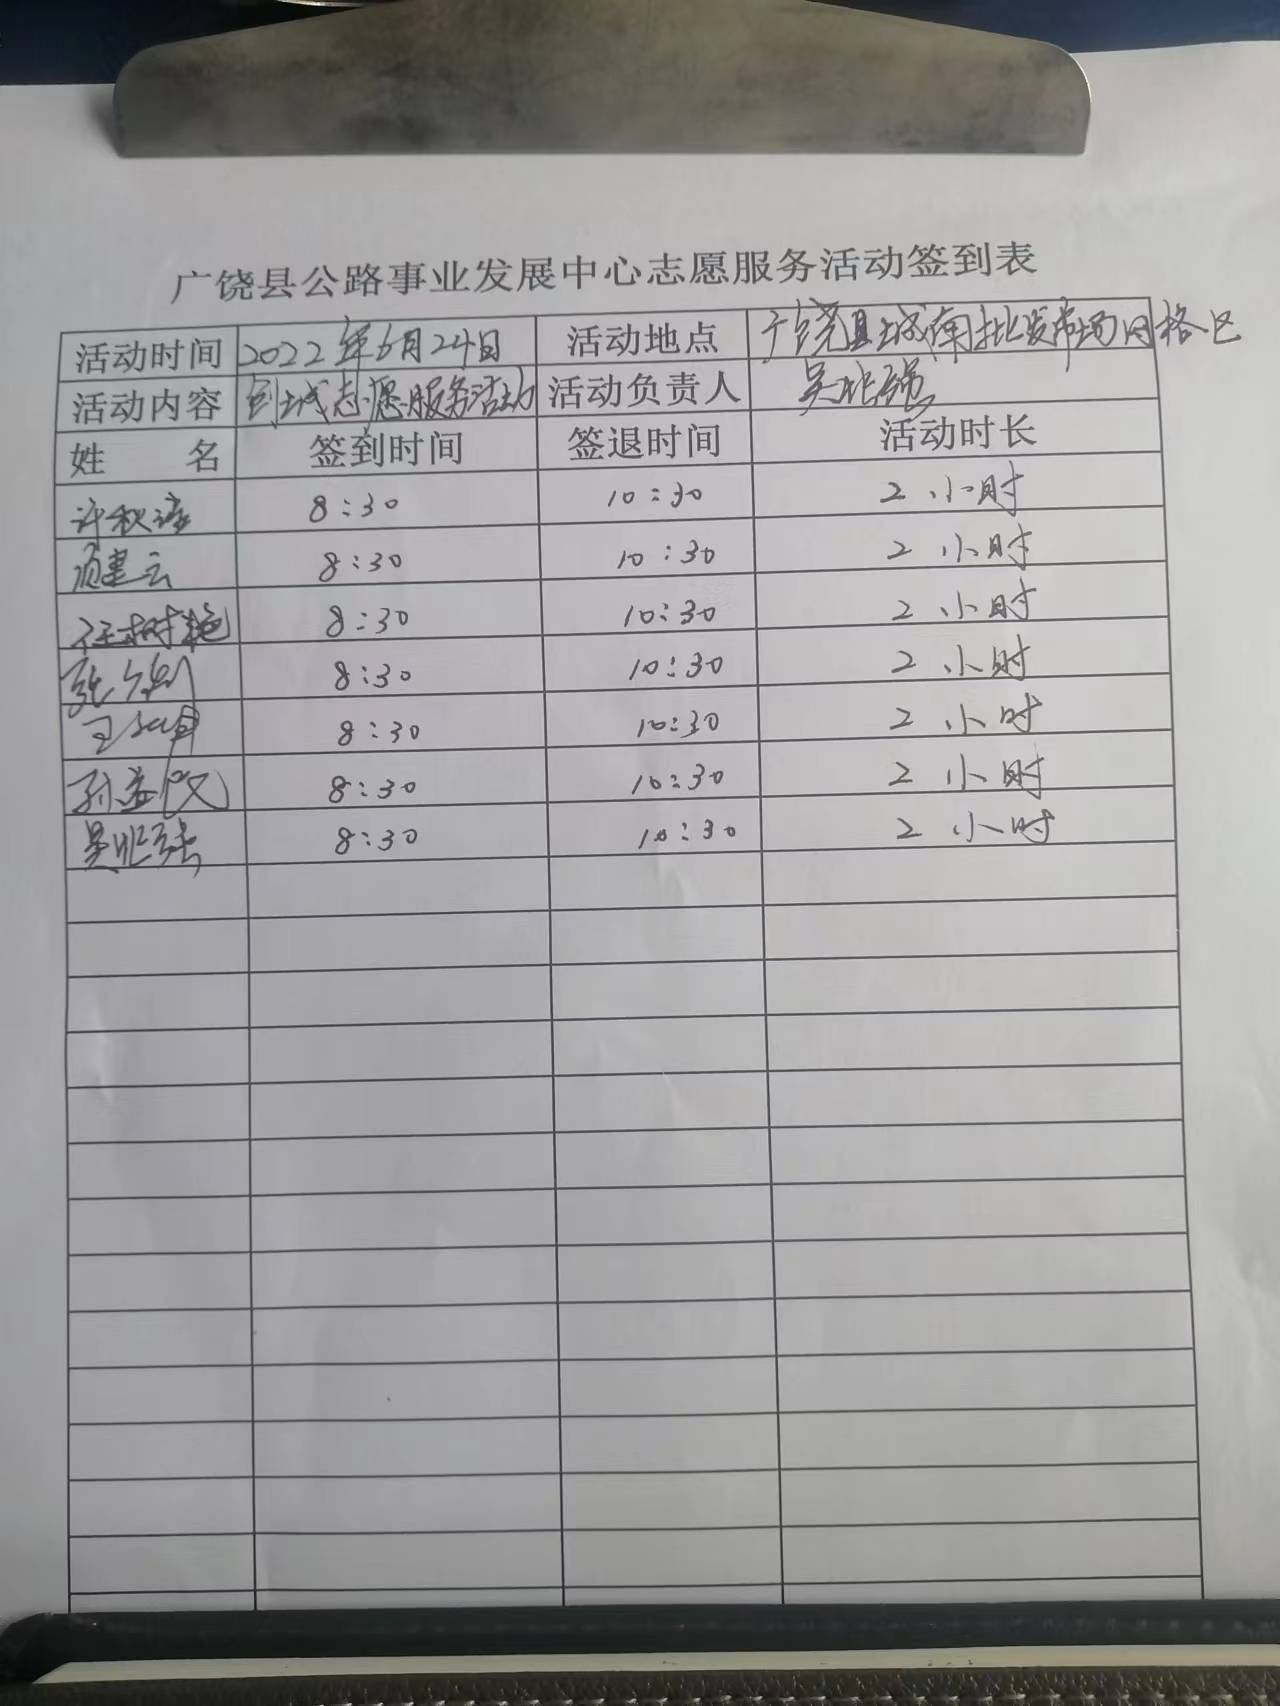 广饶县公路事业发展中心志愿服务活动签到表
活动时间 2022年6月24日 活动地点 广饶县城南批发市场网格区
活动内容 创城志愿服务活动 活动负责人 吴非强
姓 名 签到时间 签退时间 活动时长
许秋 8:30 10:30 2小时
建云 8:30 10:30 2小时
任树艳 8:30 10:30 2小时
张 8:30 10:30 2小时
王 8:30 10:30 2小时
孙益 8:30 10:30 2小时
吴非强 8:30 10:30 2小时